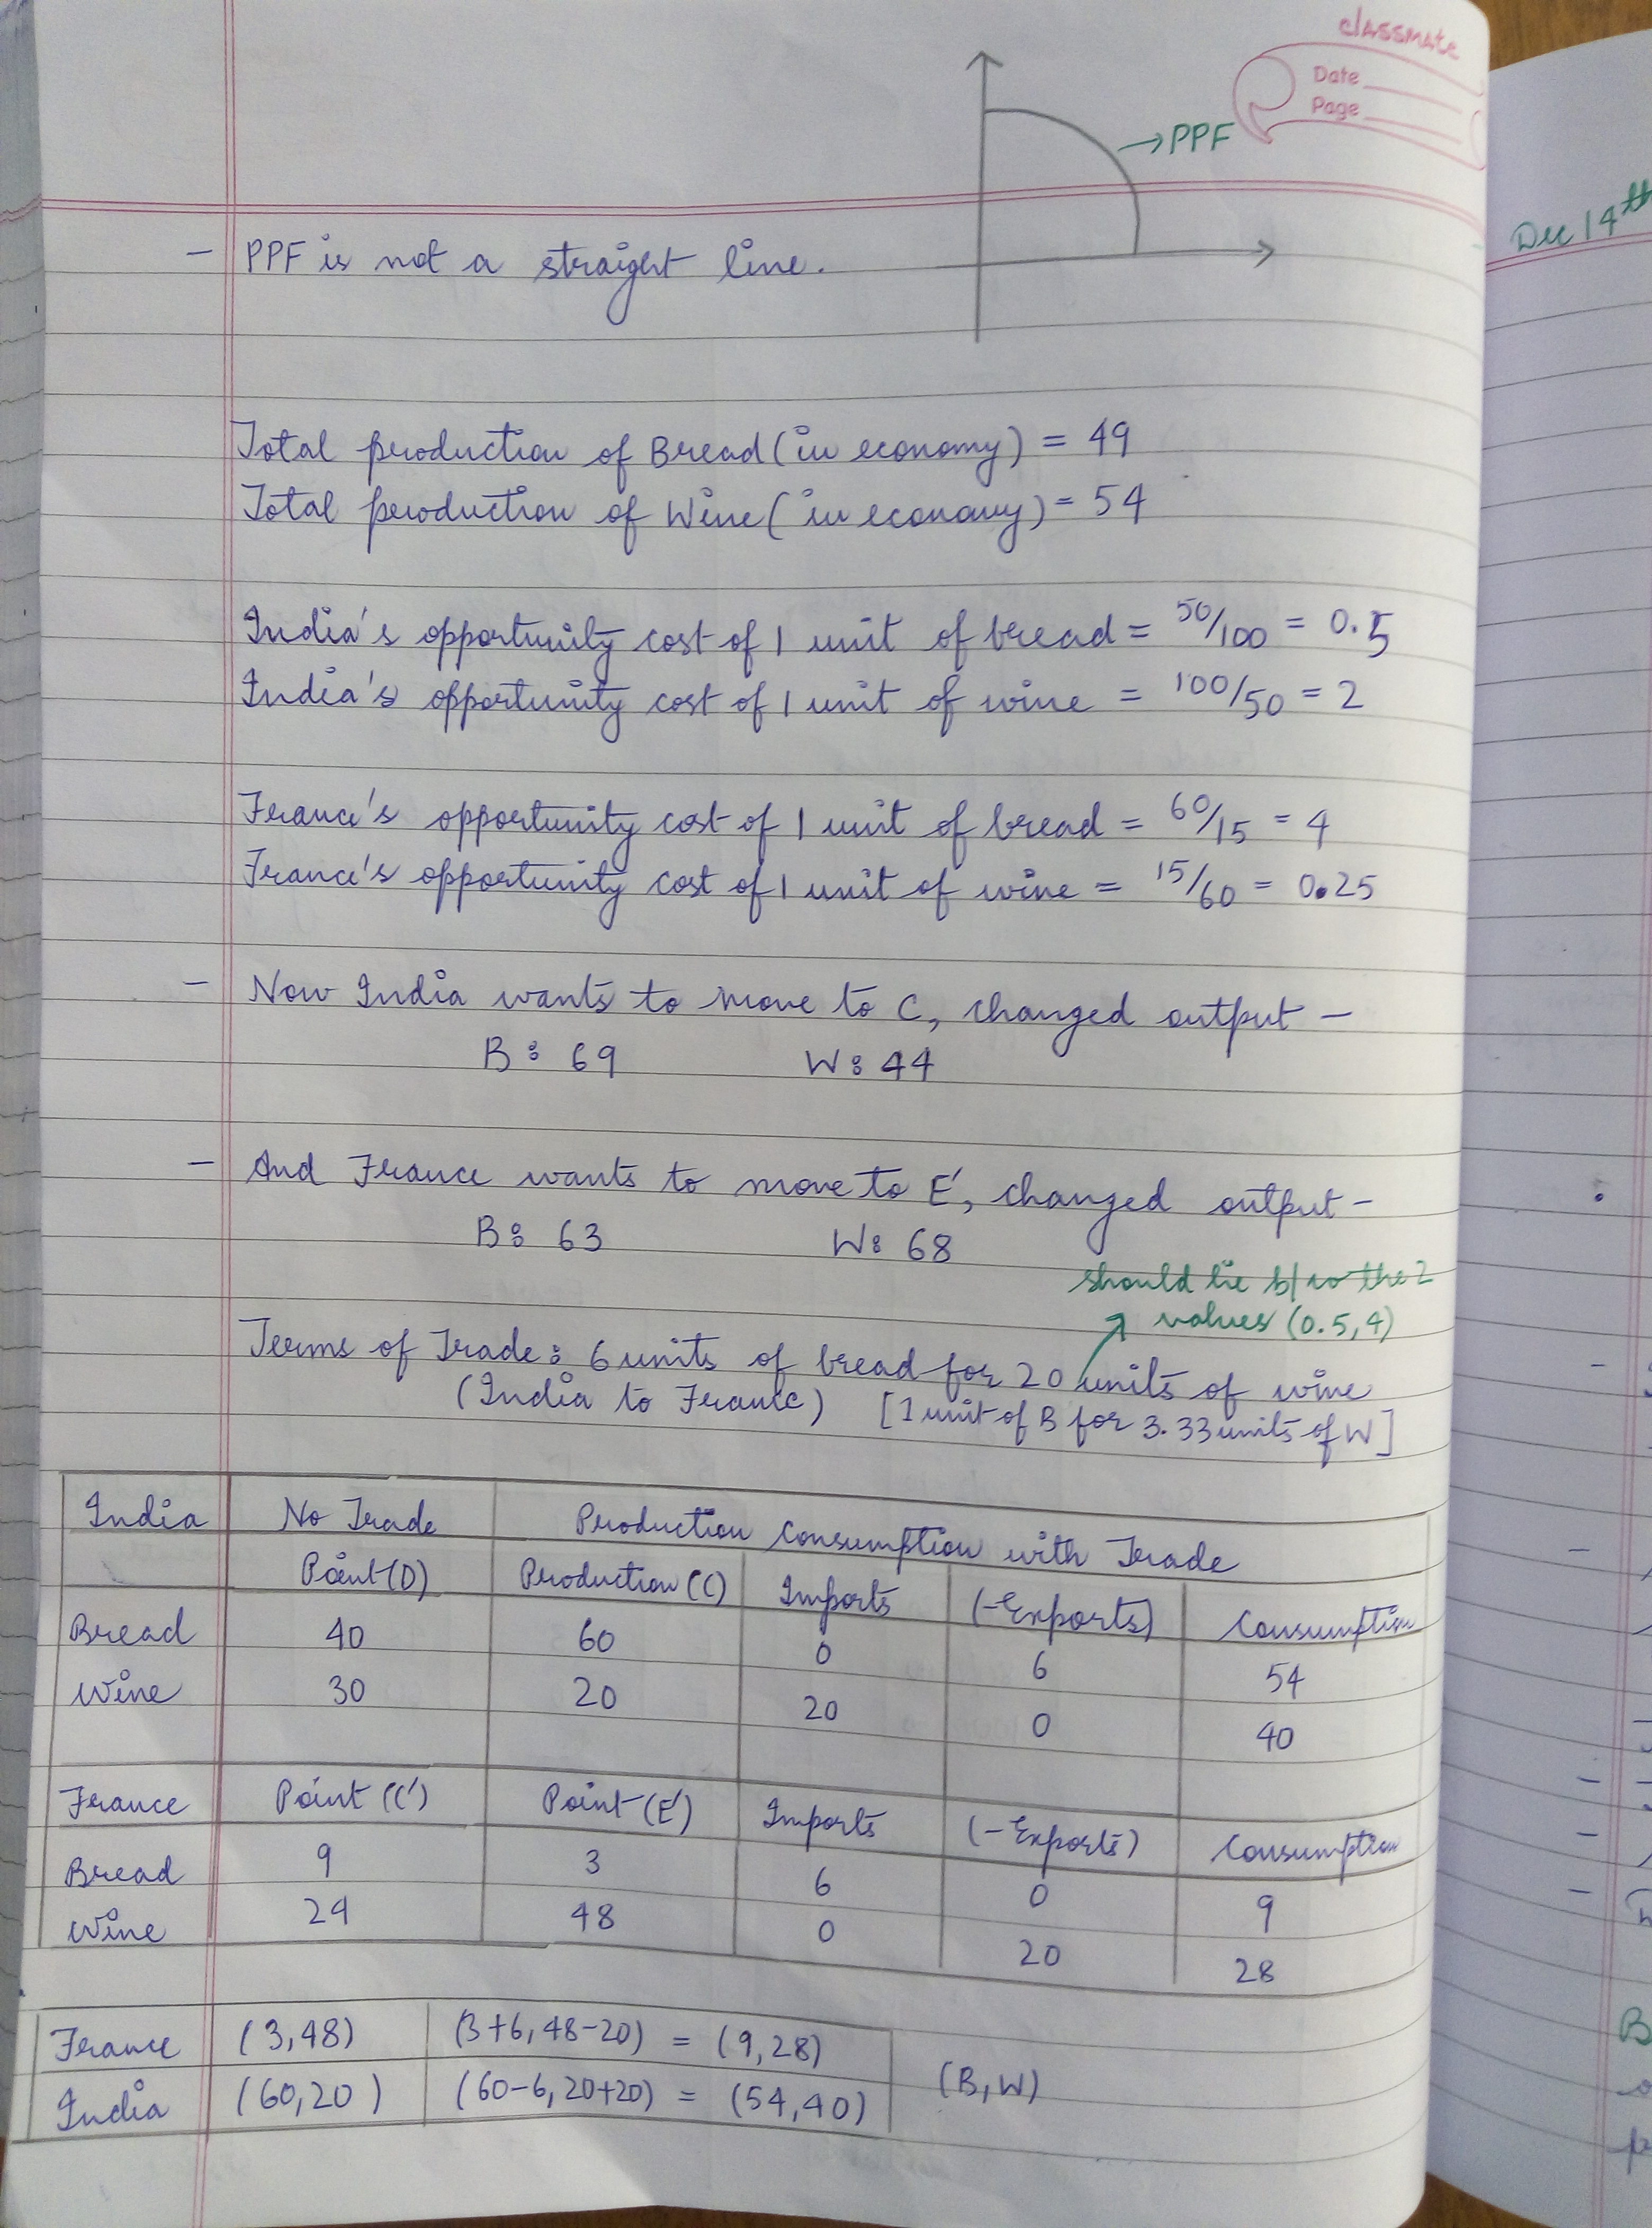 classmate
Date
Page
→PPF
- PPF is not a straight line.
Total production of Bread (in economy) = 49
Total production of Wine (in economy) = 54
India's opportunity cost of 1 unit of bread = 50/100 = 0.5
India's opportunity cost of 1 unit of wine = 100/50 = 2
France's opportunity cost of 1 unit of bread = 60/15 = 4
France's opportunity cost of 1 unit of wine = 15/60 = 0.25
- Now India wants to move to C, changed output -
B: 69 W: 44
- And France wants to move to E', changed output -
B: 63 W: 68
should lie b/w the 2
values (0.5, 4)
Terms of Trade: 6 units of bread for 20 units of wine
(India to France) [1 unit of B for 3.33 units of W]
India No Trade Production Consumption with Trade
Point (D) Production (C) Imports (-Exports) Consumption
Bread 40 60 0 6 54
Wine 30 20 20 0 40
France Point (C') Point (E') Imports (-Exports) Consumption
Bread 9 3 6 0 9
Wine 24 48 0 20 28
France (3,48) (3+6, 48-20) = (9,28)
India (60,20) (60-6, 20+20) = (54,40) (B,W)
Dec 14th